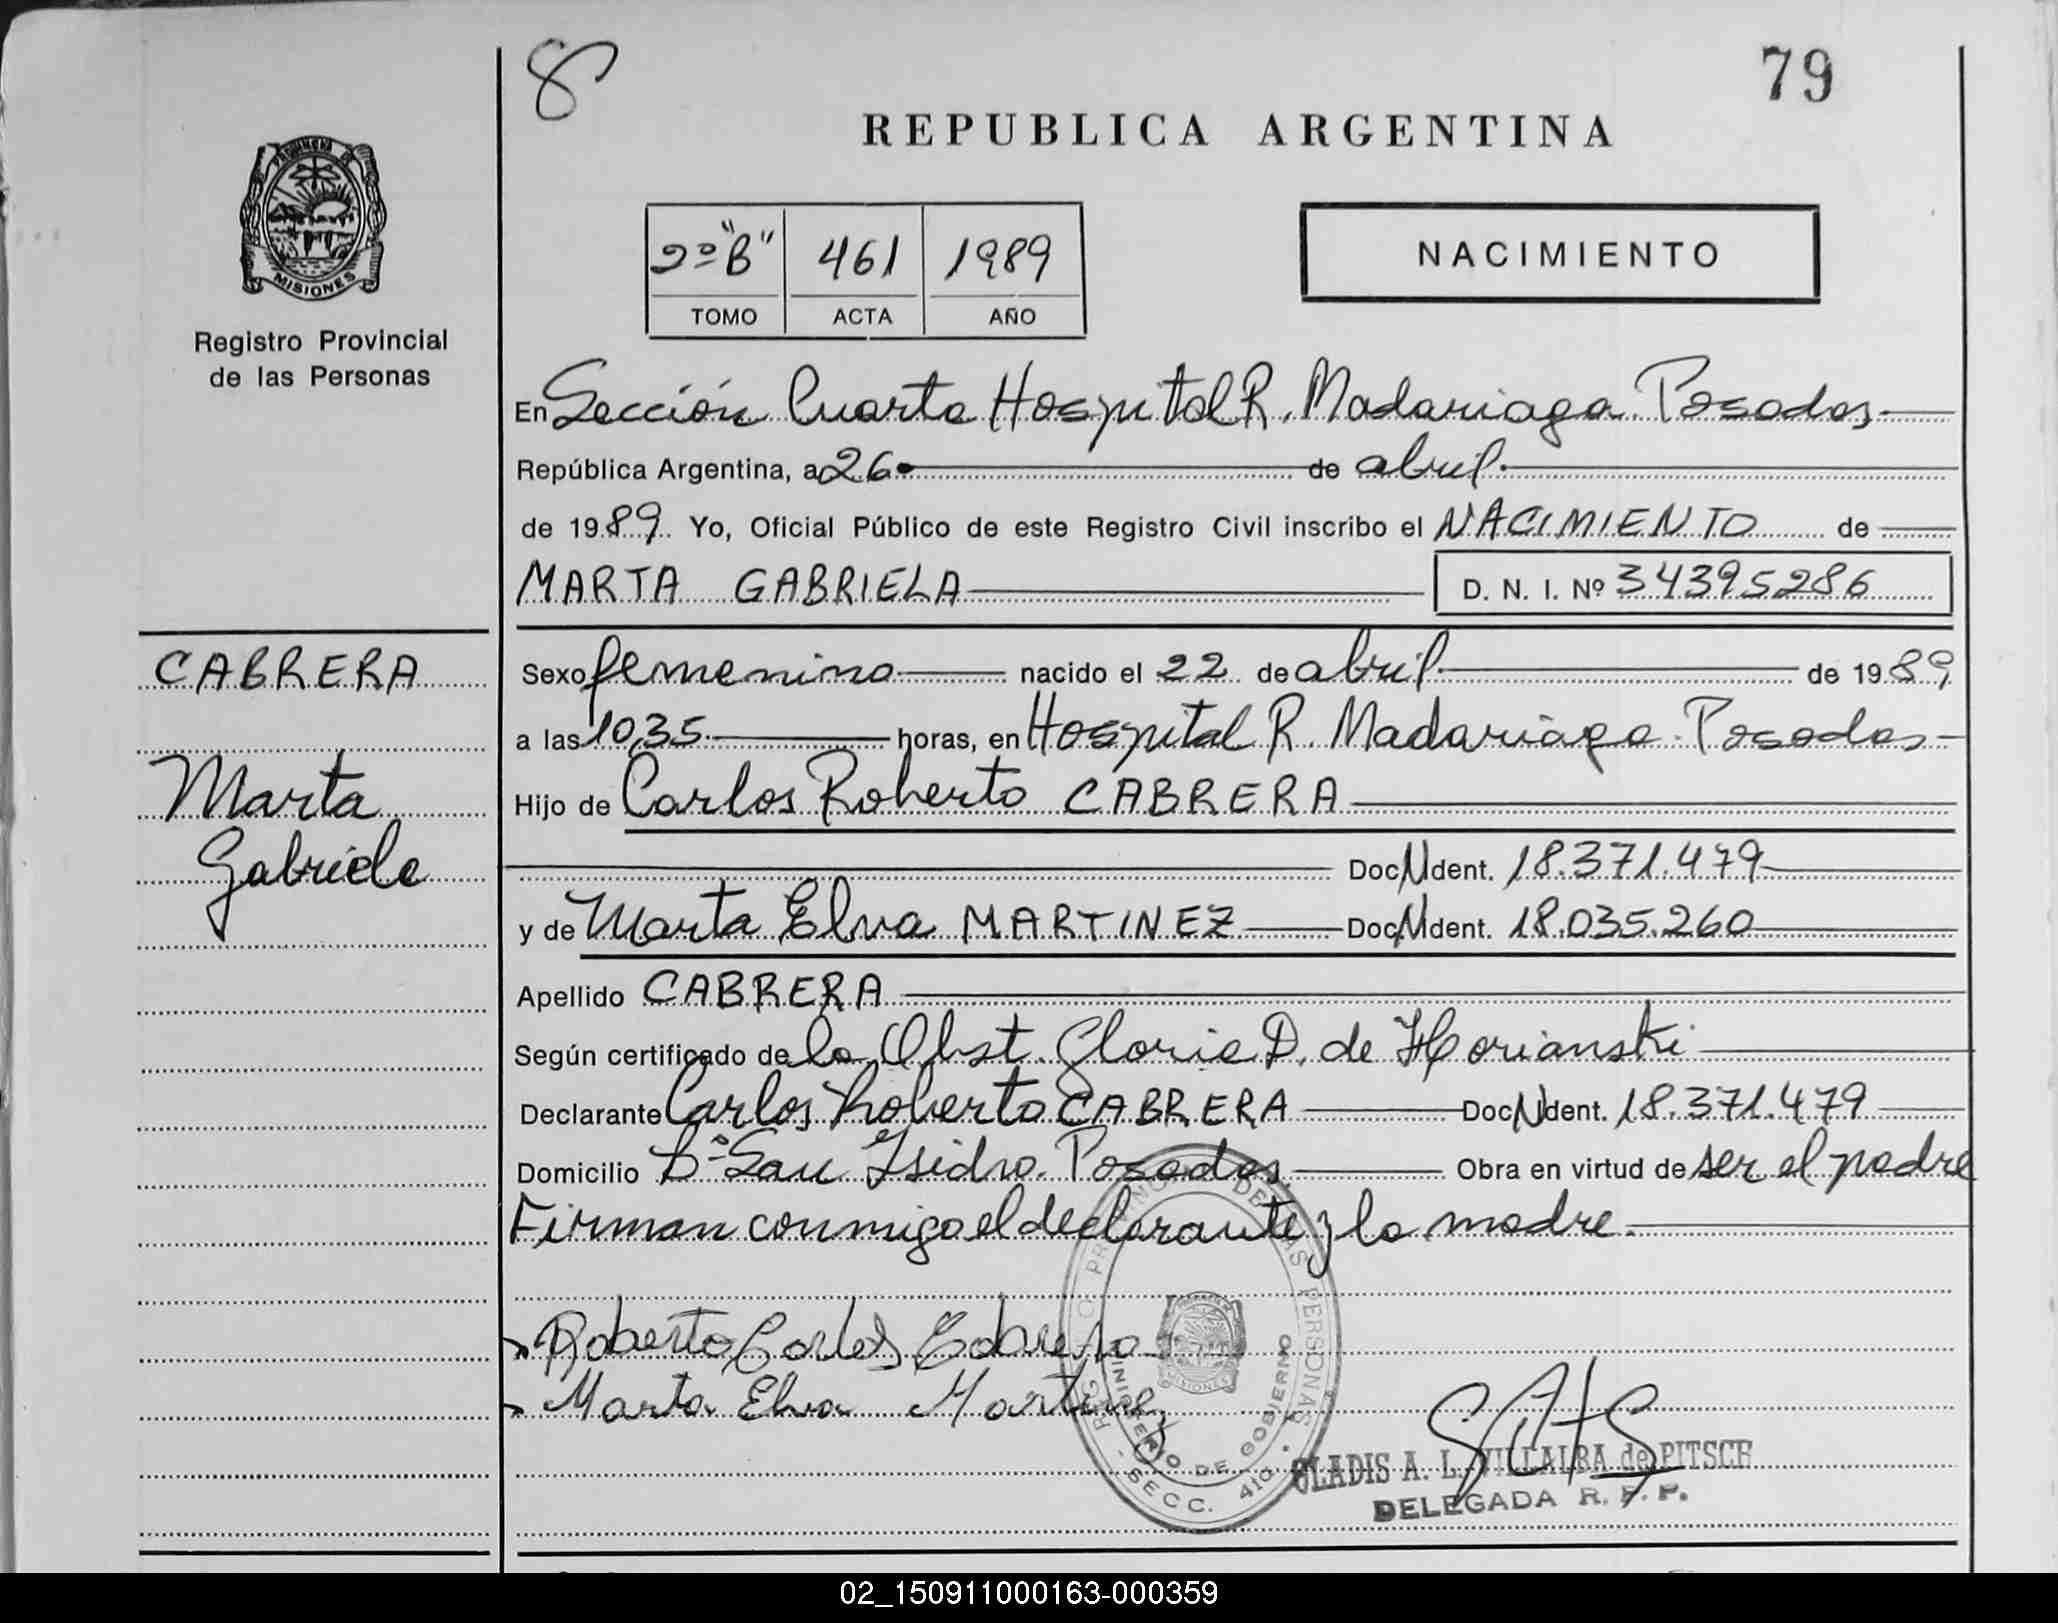 8
79
REPUBLICA ARGENTINA
PROVINCIA DE
MISIONES
Registro Provincial
de las Personas
2º "B" 461 1989
TOMO ACTA AÑO
NACIMIENTO
En Sección Cuarta Hospital R. Madariaga Posadas
República Argentina, a 26 de abril
de 1989 Yo, Oficial Público de este Registro Civil inscribo el NACIMIENTO de
MARTA GABRIELA D. N. I. Nº 34395286
CABRERA
Marta
Gabriela
Sexo femenino nacido el 22 de abril de 1989
a las 10,35 horas, en Hospital R. Madariaga Posadas
Hijo de Carlos Roberto CABRERA
Doc N Ident. 18.371.479
y de Marta Elva MARTINEZ Doc N Ident. 18.035.260
Apellido CABRERA
Según certificado de la Obst. Gloria D. de Horianski
Declarante Carlos Roberto CABRERA Doc N Ident. 18.371.479
Domicilio Bº San Isidro. Posadas Obra en virtud de ser el padre
Firman conmigo el declarante y la madre.
Roberto Carlos Cabrera
Marta Elva Martinez
REGISTRO PROVINCIAL DE LAS PERSONAS
MINISTERIO DE GOBIERNO
MISIONES
SECC. 4ta.
GLADIS A. L. VILLALBA de PITSCH
DELEGADA R. P. P.
02_150911000163-000359